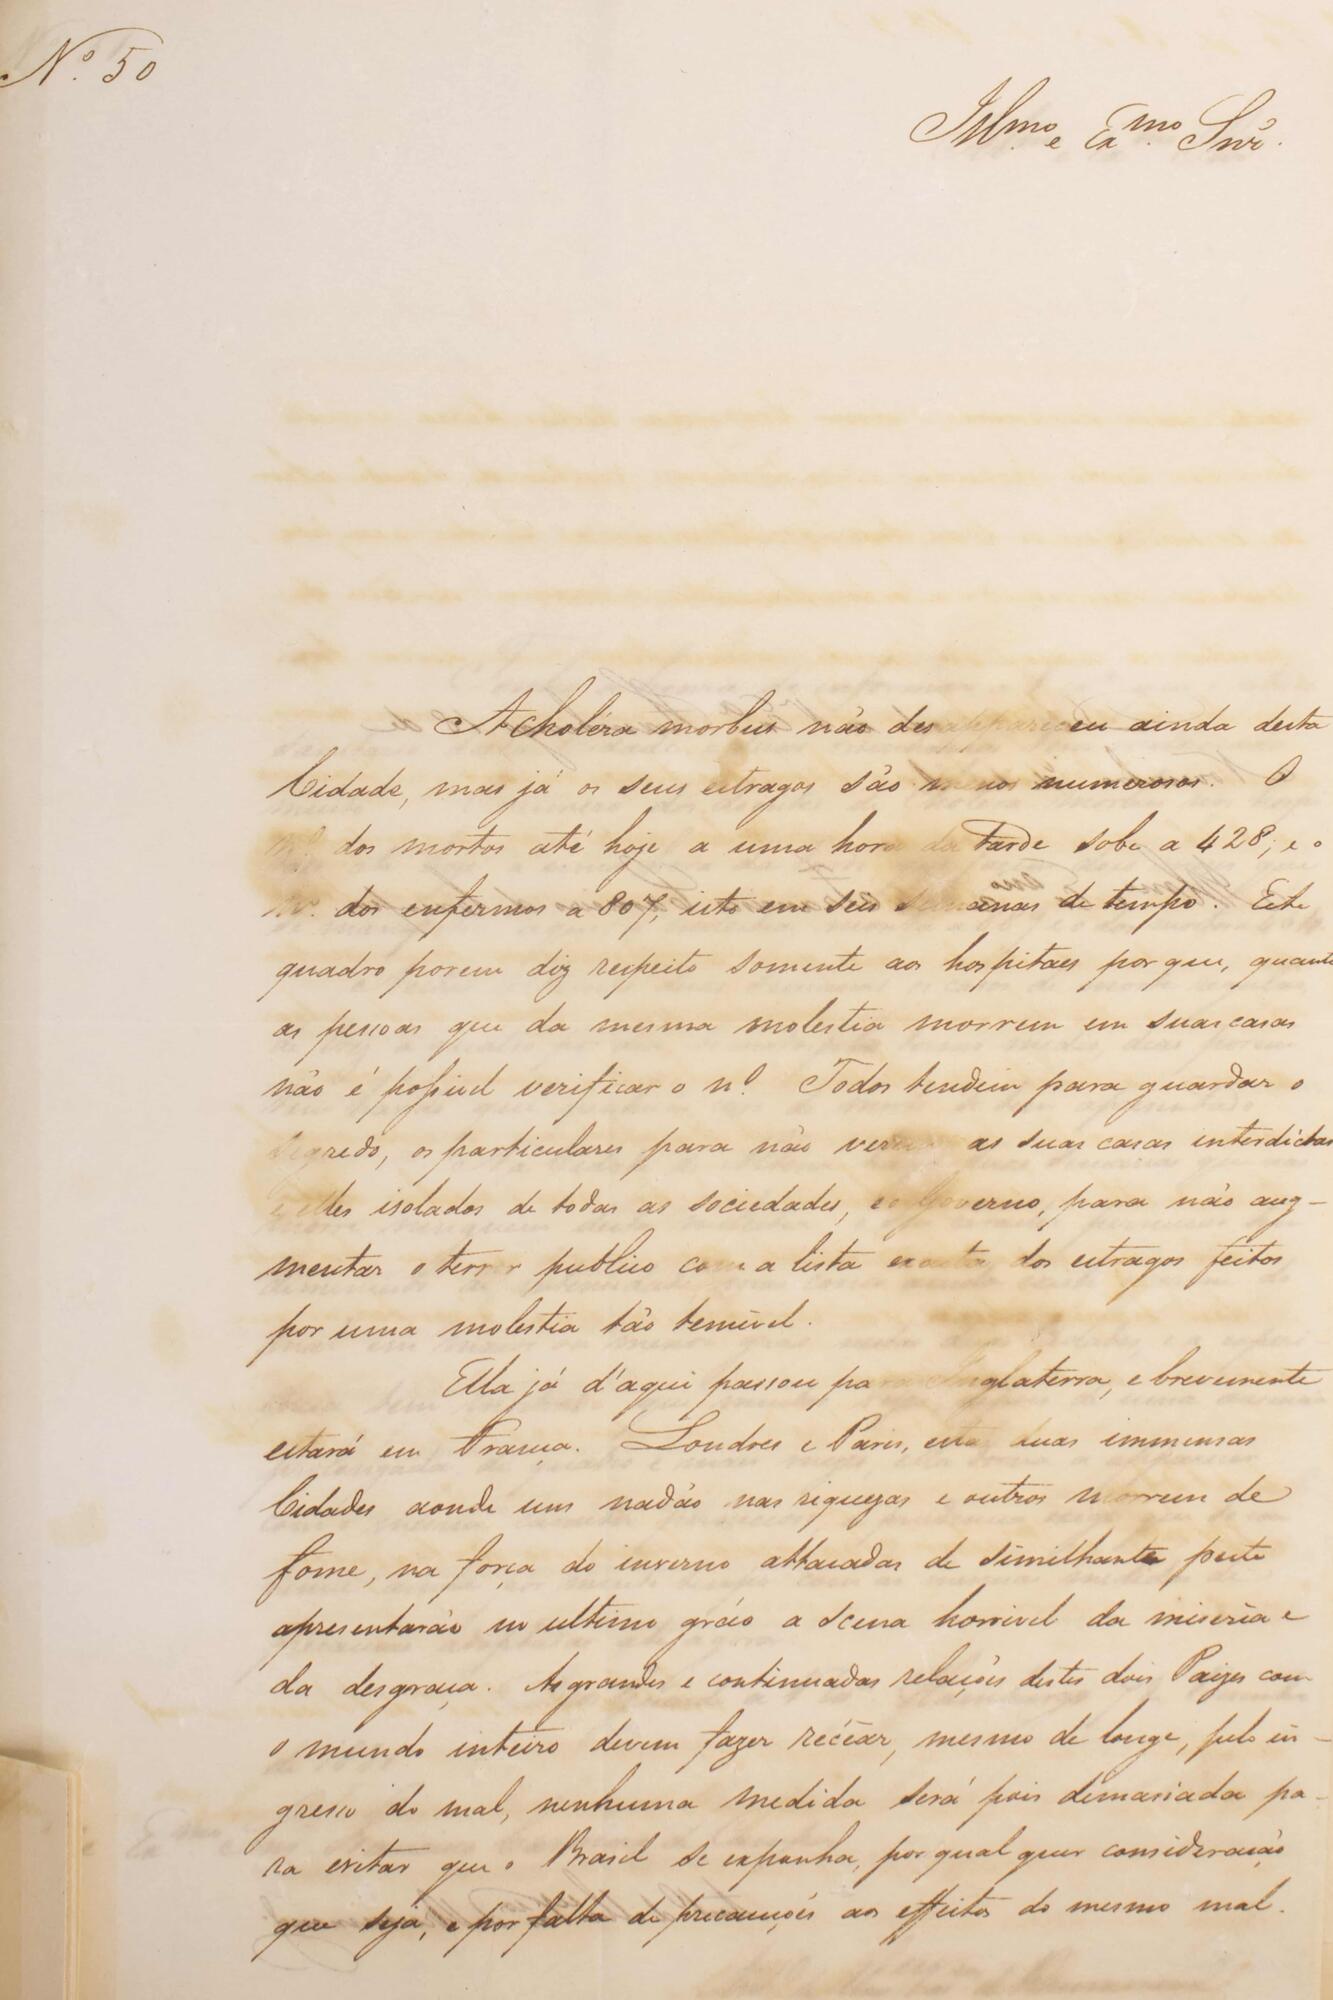 Nº. 50
Illmo. e Exmo. Snr̃.
A Cholera morbus não desappareceu ainda desta
Cidade, mas já os seus estragos são menos numerosos. O
nº. dos mortos até hoje a uma hora da tarde sobe a 428; e o
nº. dos enfermos a 807, isto em seis semanas de tempo. Este
quadro porem diz respeito somente aos hospitaes porque, quanto
as pessoas que da mesma molestia morrem em suas casas
não é possivel verificar o nº. Todos tendem para guardar o
segredo, os particulares para não verem as suas casas interdictas
e elles isolados de todas as sociedades, e o Governo, para não aug-
mentar o terror publico com a lista exacta dos estragos feitos
por uma molestia tão temivel.
Ella já d'aqui passou para Inglaterra, e brevemente
estará em França. Londres e Paris, estas duas immensas
Cidades aonde uns nadão nas riquezas e outros morrem de
fome, na força do inverno attacadas de similhante peste
apresentarão no ultimo gráo a scena horrivel da miseria e
da desgraça. As grandes e continuadas relações destes dois Paizes com
o mundo inteiro devem fazer recear, mesmo de longe, pelo in-
gresso do mal, nenhuma medida será pois demasiada pa-
ra evitar que o Brasil se exponha, por qual quer consideração
que seja, e por falta de precauções aos effeitos do mesmo mal.